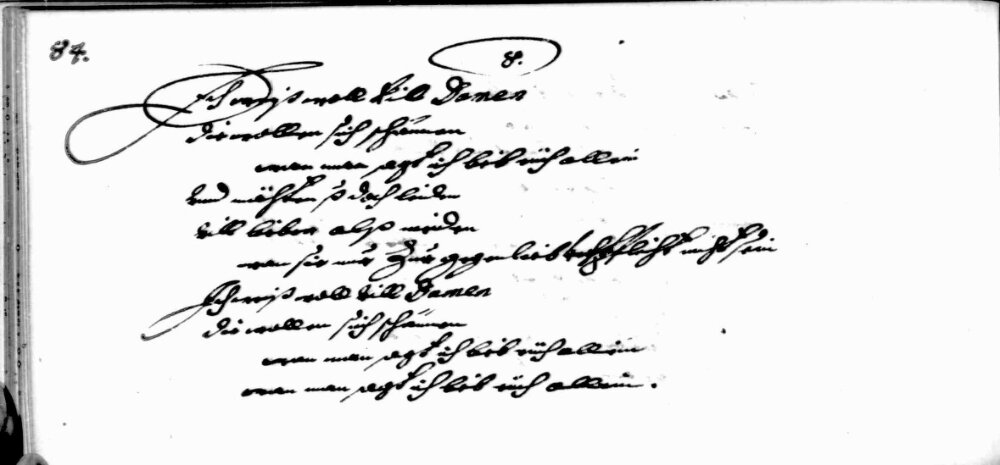 84.
8.
Ich weiß woll vill Damen
die wollen sich schämen
wan man sagt ich lieb eüch allein
vnd möchten ß doch leiden
vill lieber alß meiden
wan sie nur Zur gegenlieb verpflicht nicht sein
Ich weiß woll vill Damen
die wollen sich schämen
wan man sagt ich lieb eüch allein
wan man sagt ich lieb eüch allein.